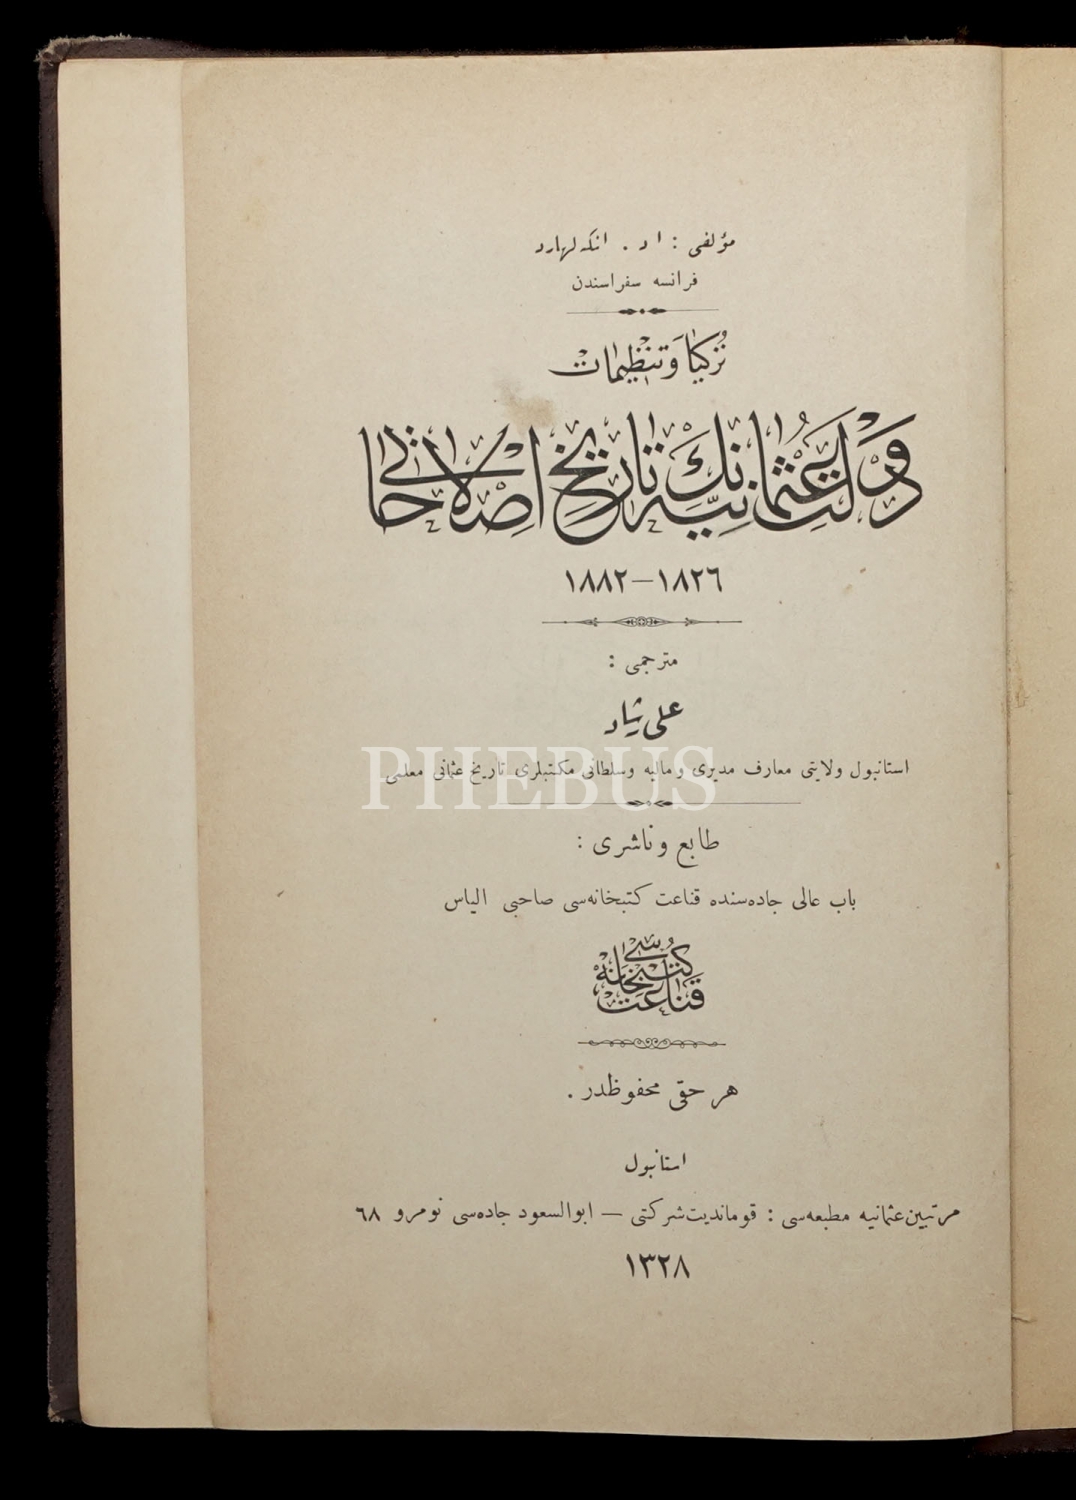 مؤلفی : اد . انكه‌لهارد
فرانسه سفراسندن
تُركيا وَ تنظيمات
دَولتِ عُثمانيّه‌نك تاريخ اصلاحاتی
١٨٢٦—١٨٨٢
مترجمی :
علی رشاد
استانبول ولايتی معارف مديری و ماليه وسلطانی مكتبلری تاريخ عثمانی معلمی
PHEBUS
طابع و ناشری :
باب عالی جاده‌سنده قناعت كتبخانه‌سی صاحبی الياس
قناعت كتبخانه‌سی
هر حقّی محفوظدر .
استانبول
مرتبين عثمانيه مطبعه‌سی : قومانديت شركتی — ابوالسعود جاده‌سی نومرو ٦٨
١٣٢٨